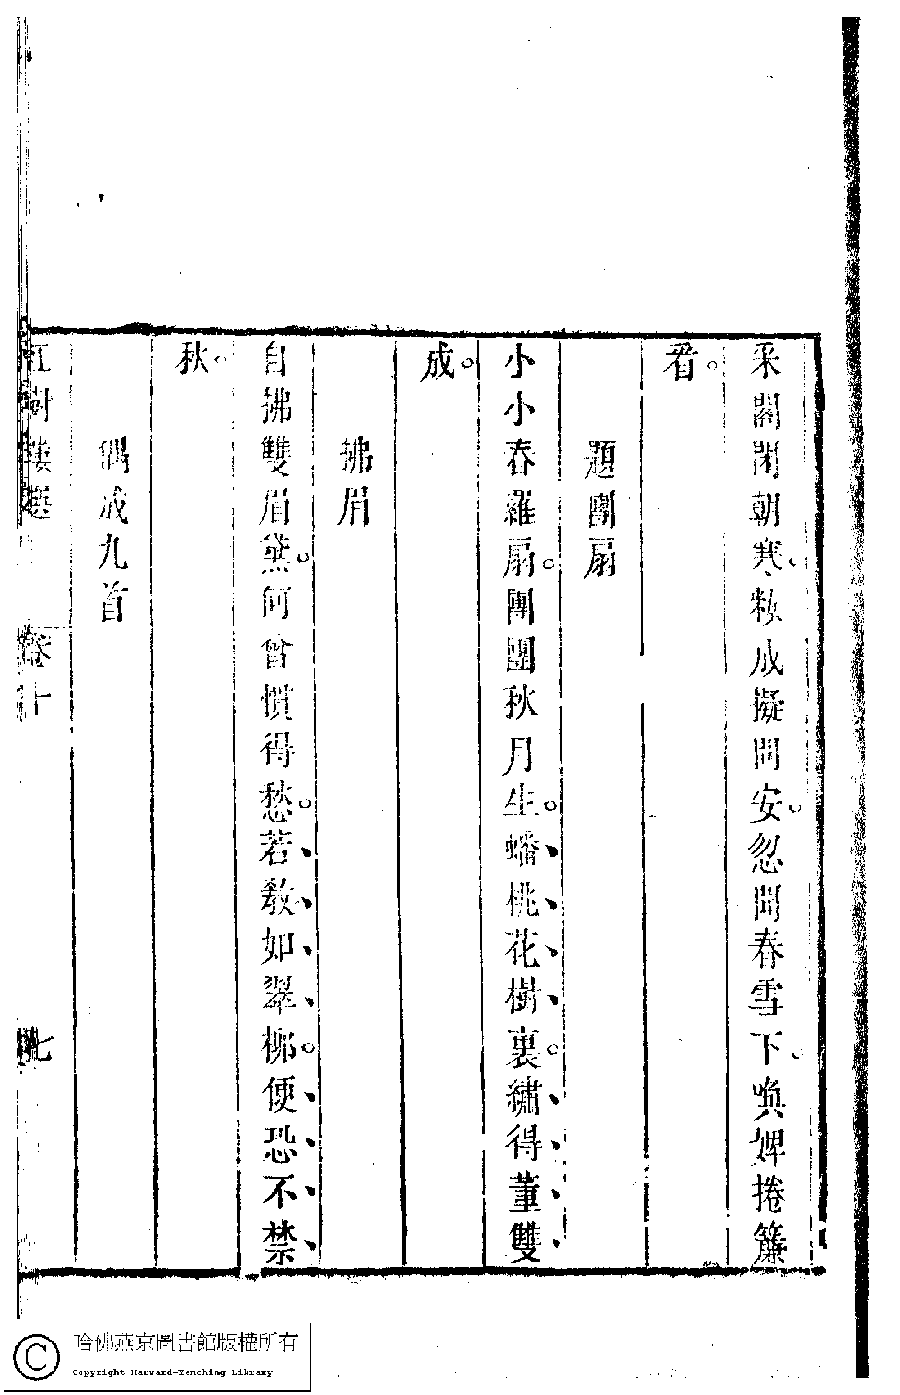 采閣閉朝寒粧成擬問安忽聞春雪下喚婢捲簾
看
題團扇
小小春羅扇團團秋月生蟠桃花樹裏繡得董雙
成
拂眉
自拂雙眉黛何曾慣得愁若教如翠柳便恐不禁
秋
偶成九首
紅樹樓選 卷十 七
哈佛燕京圖書館版權所有
Copyright Harvard-Yenching Library